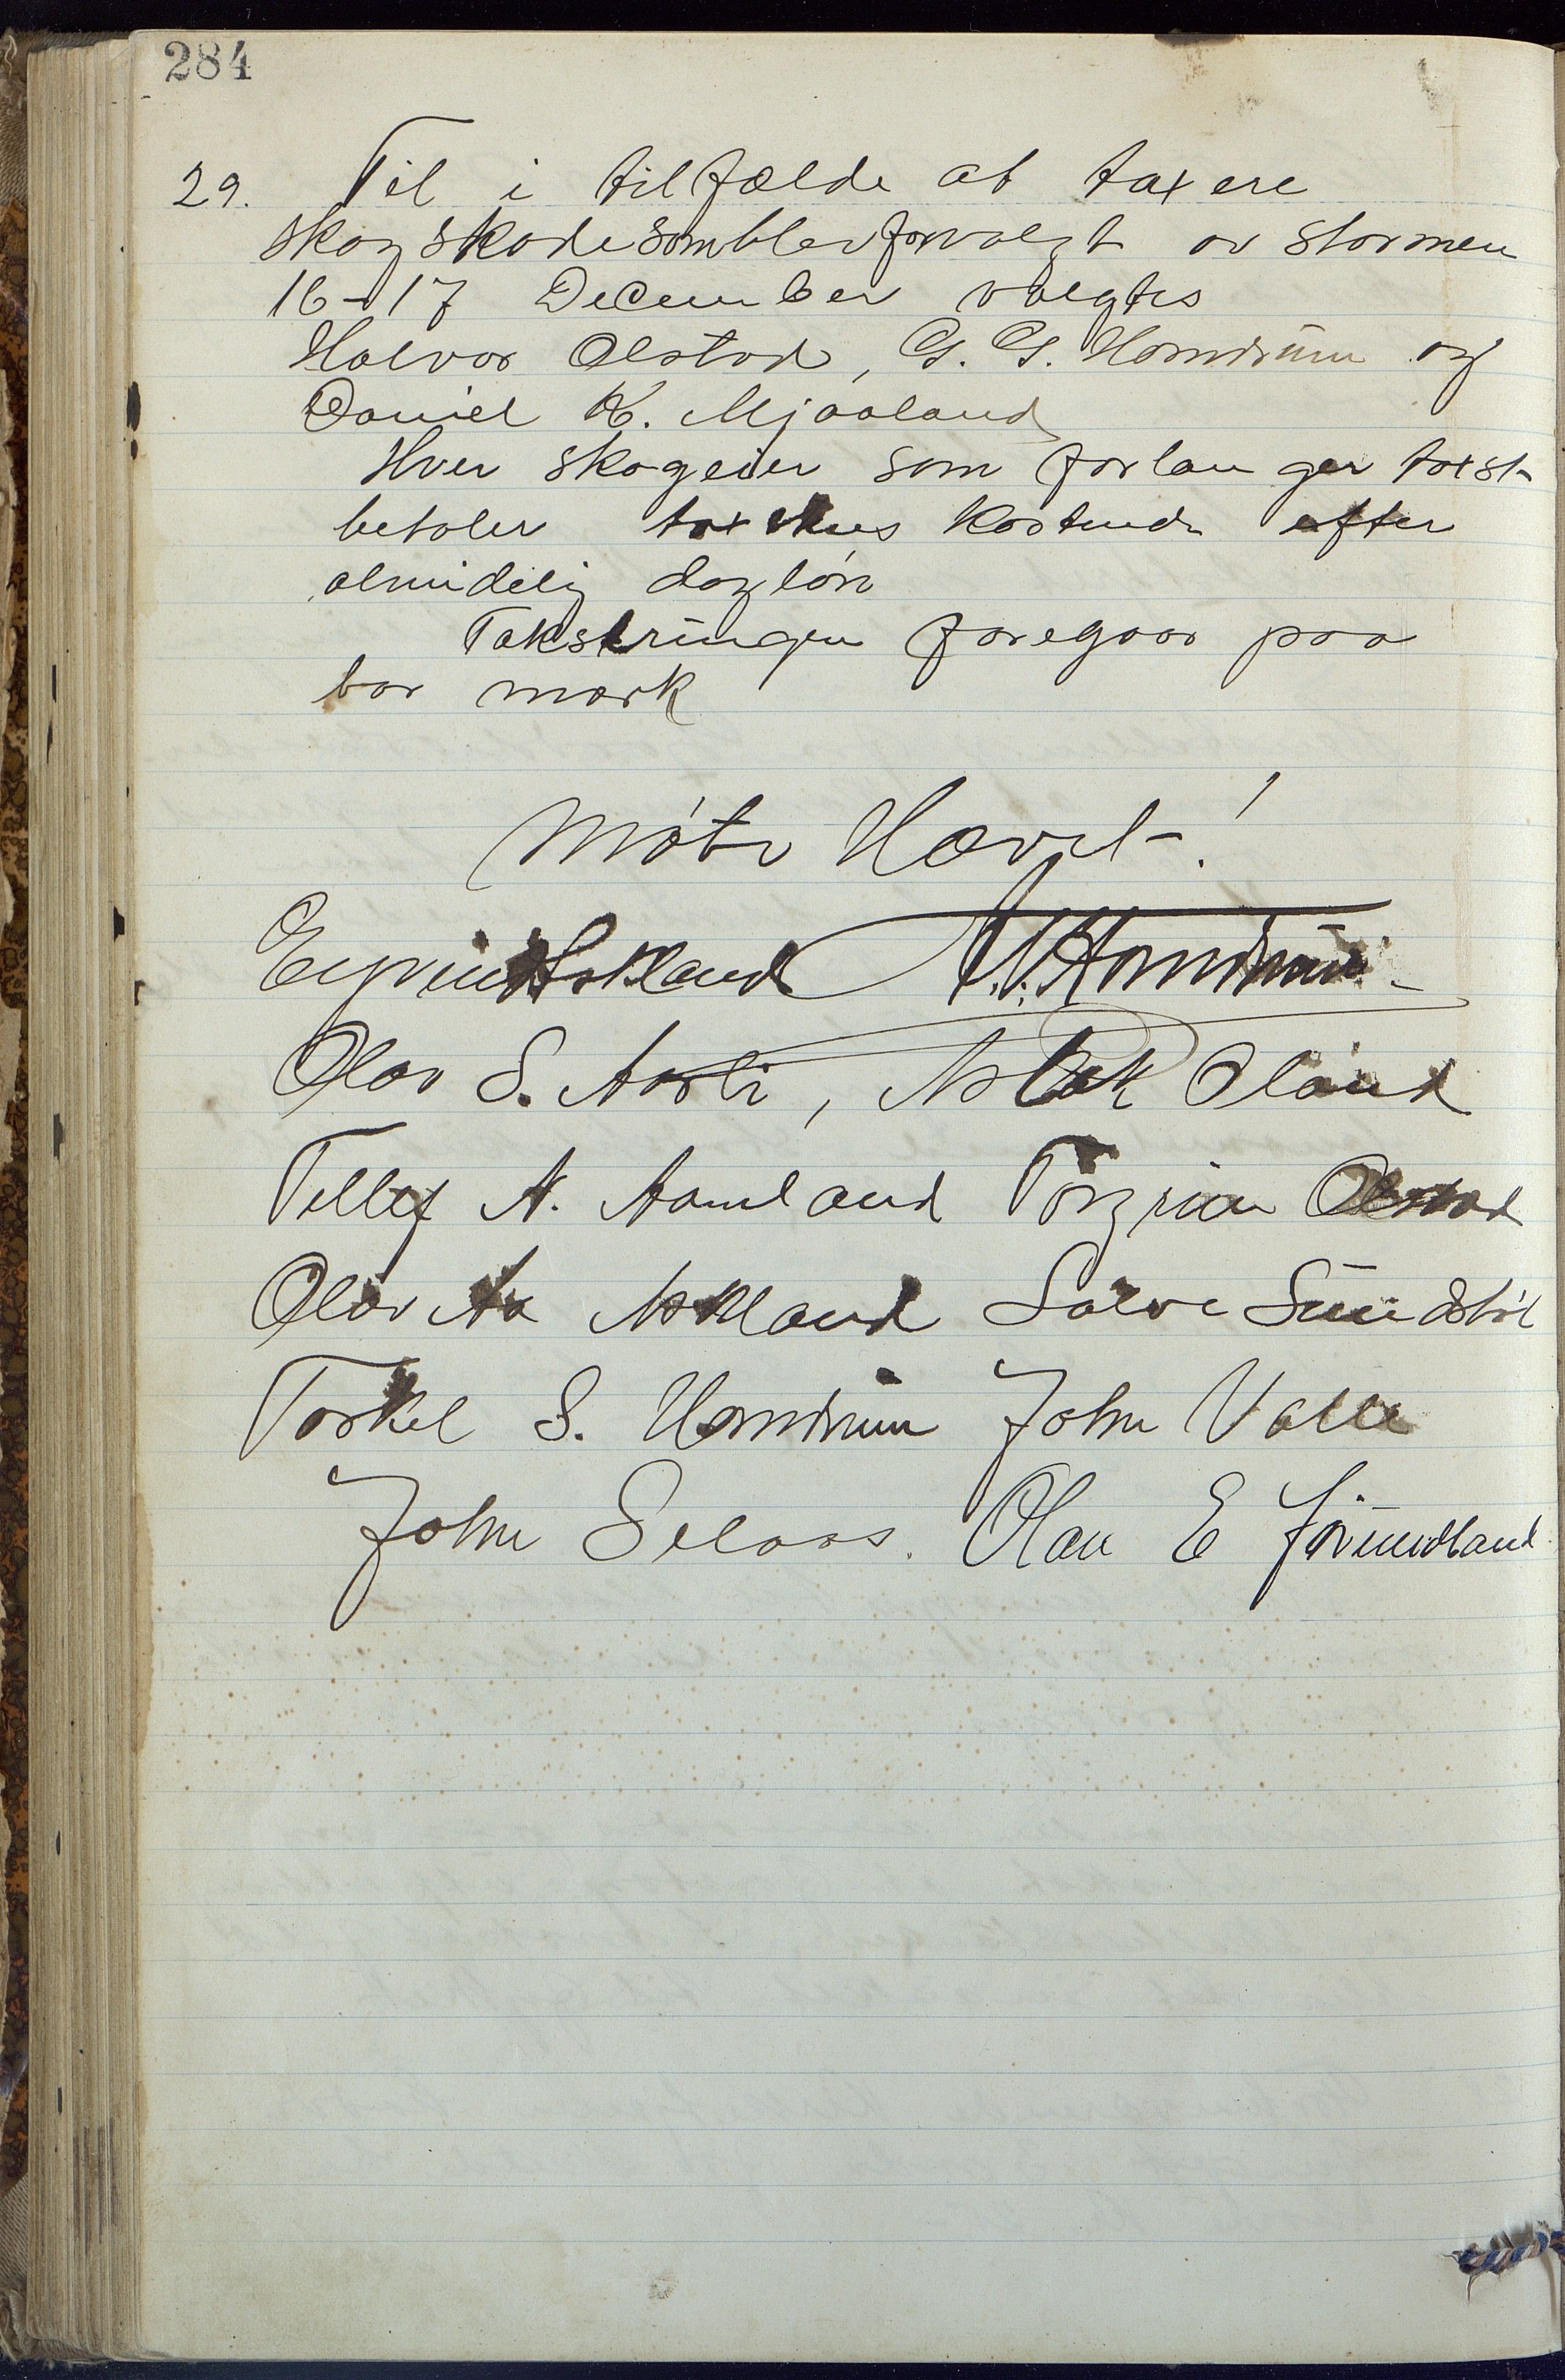 284
29. Til i tilfælde at taxere
skogskade som blev forvolgt av stormen
16-17 December valgtes
Halvor Olstad, G. G. Homdrum og
Daniel K. Mjaaland
Hver skogeier som forlanger taxst
betaler kostende efter
almidelig dagløn
Takseringen foregaar paa
bar mark
Møte Hævet!
Eyvind Askland Homdrum
Olav S. Aasli, Aslak Oland
Tellef N. Aamland Torgrim Olstad
Olav Aa Askland Salve Sundstøl
Torkel S. Homdrum John Valle
John Selaas. Olau E